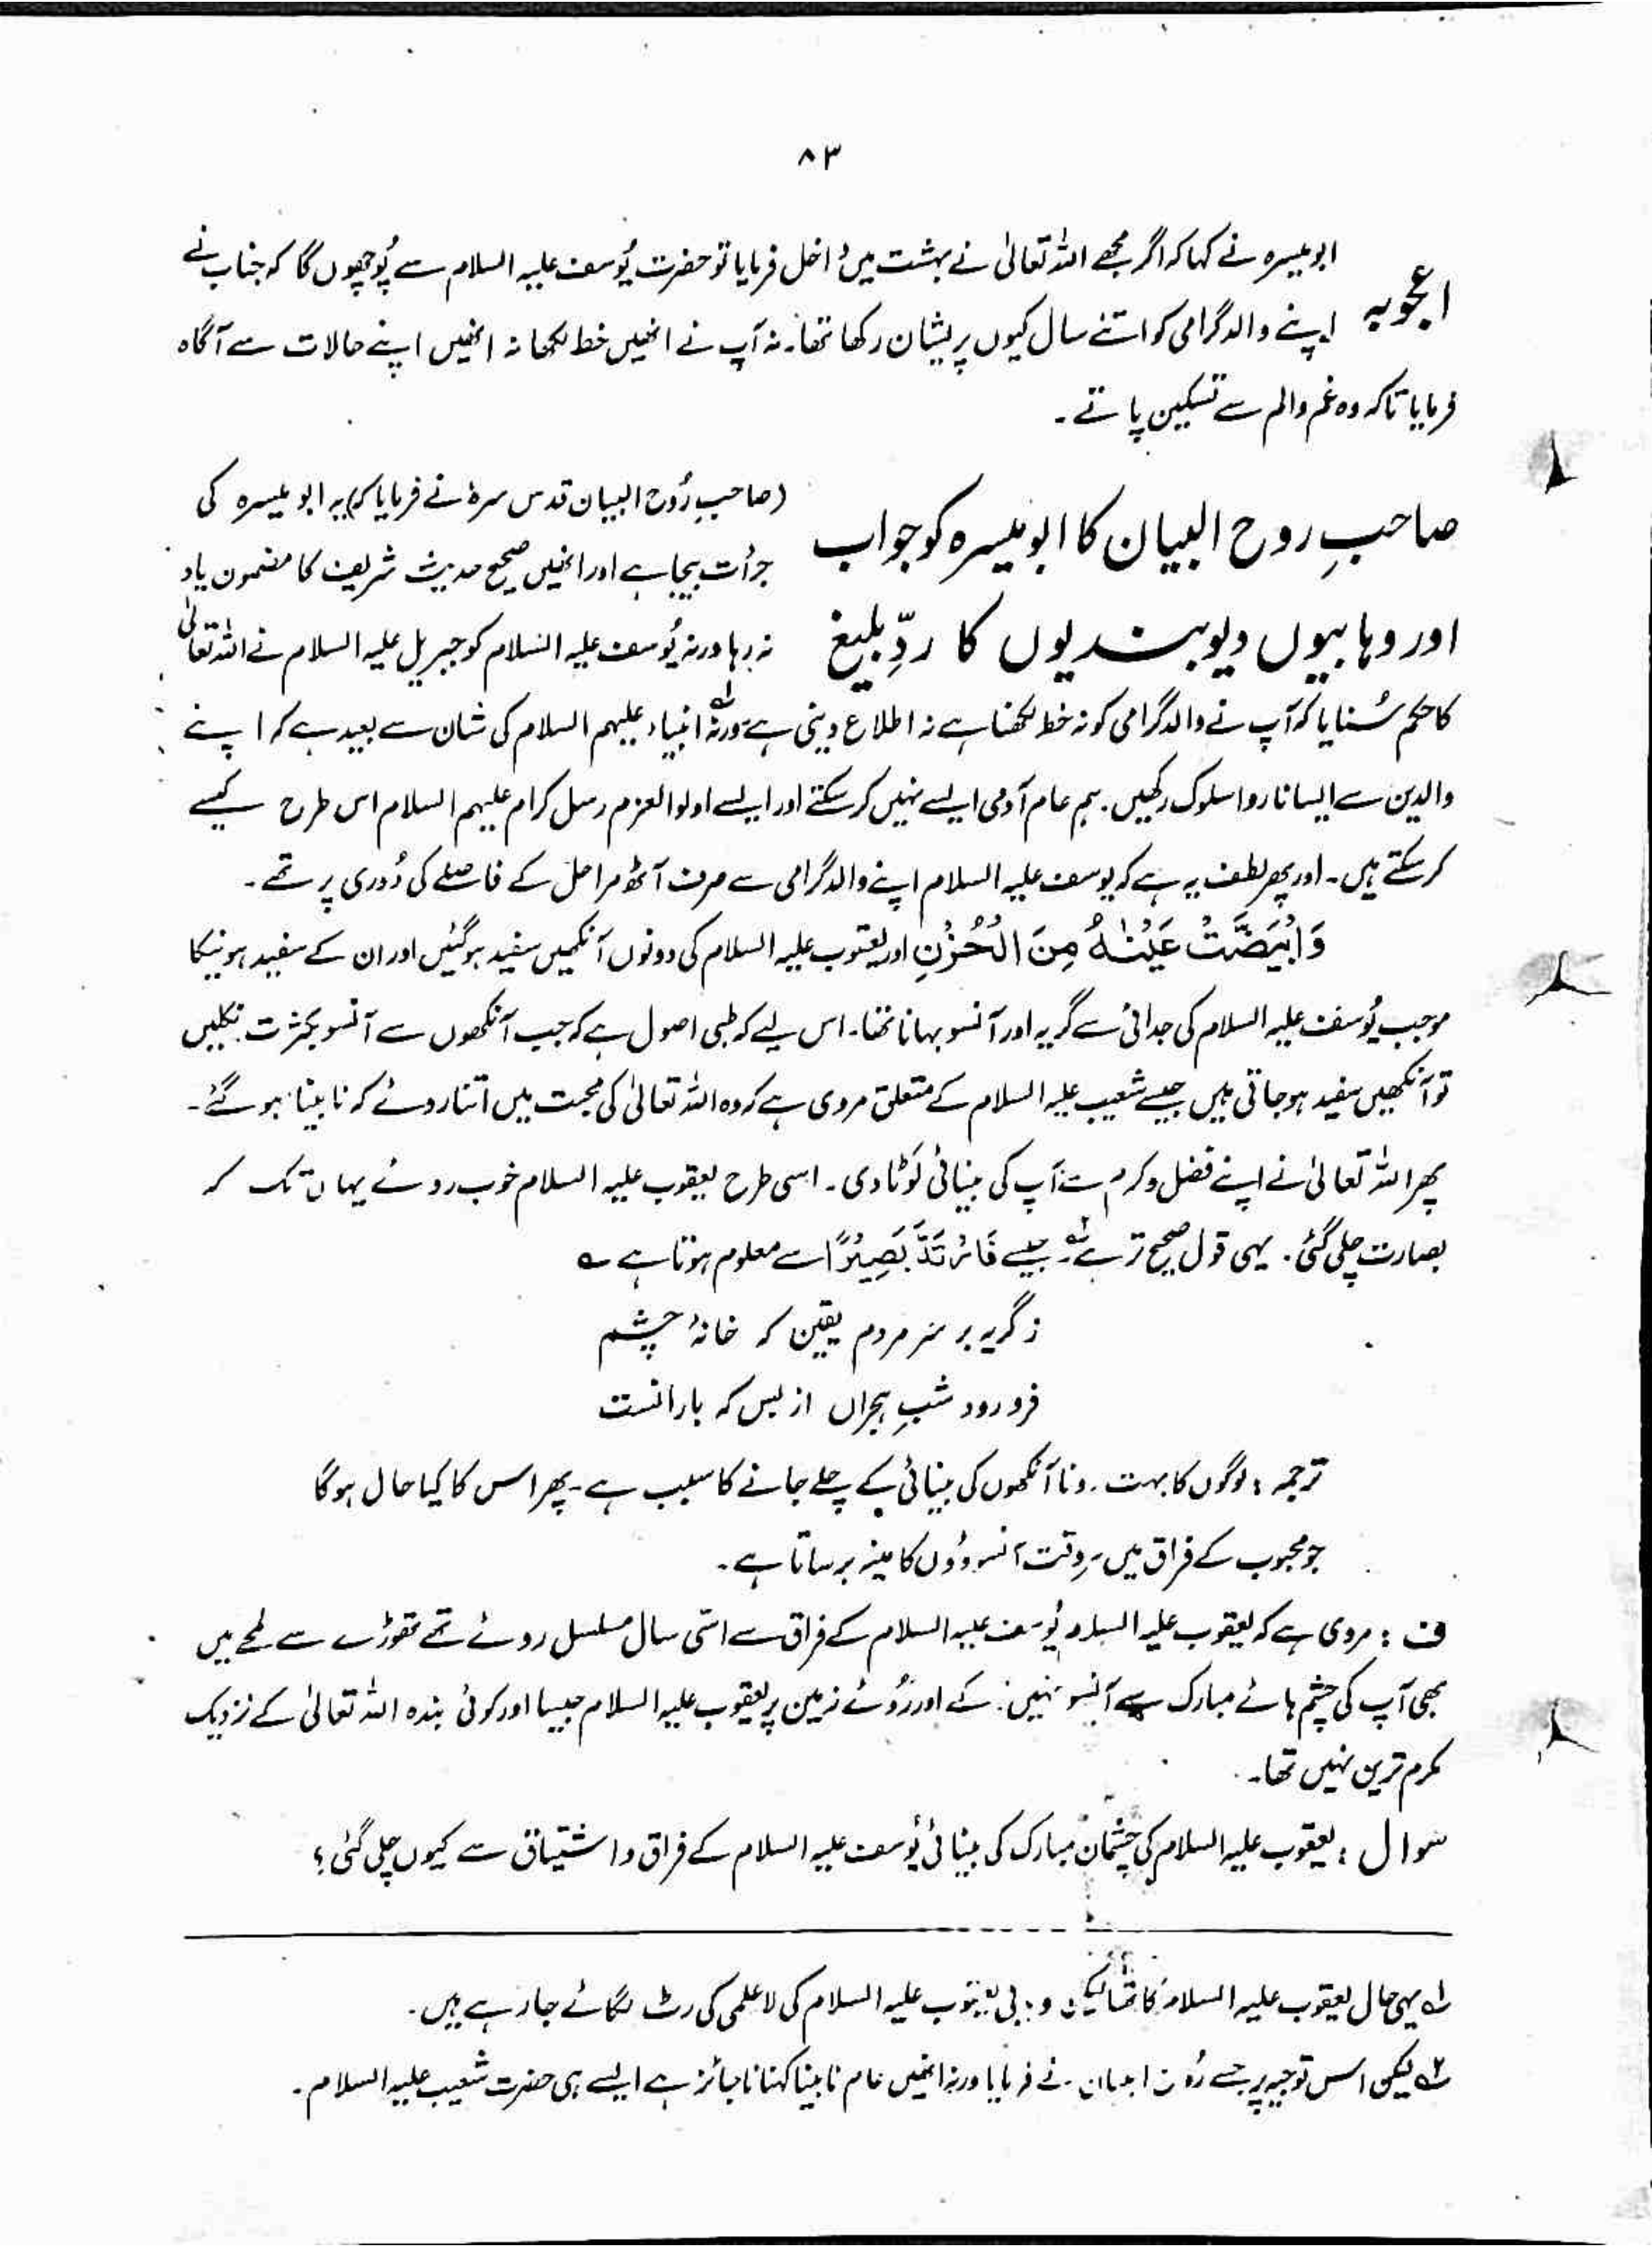 ۸۳
ابو میسرہ نے کہا کہ اگر مجھے اللہ تعالیٰ نے بہشت میں داخل فرمایا تو حضرت یُوسف علیہ السلام سے پُوچھوں گا کہ جناب نے
اعجوبہ
اپنے والد گرامی کو اتنے سال کیوں پریشان رکھا تھا۔ نہ آپ نے انھیں خط لکھا نہ انھیں اپنے حالات سے آگاہ
فرمایا تاکہ وہ غم والم سے تسکین پاتے۔
صاحبِ روح البیان کا ابو میسرہ کو جواب
اور وہابیوں دیوبندیوں کا ردِّ بلیغ
(صاحبِ رُوح البیان قدس سرہٗ نے فرمایا کہ) یہ ابو میسرہ کی
جرأت بیجا ہے اور انھیں صحیح حدیث شریف کا مضمون یاد
نہ رہا ورنہ یُوسف علیہ السلام کو جبریل علیہ السلام نے اللہ تعالیٰ
کا حکم سُنایا کہ آپ نے والد گرامی کو نہ خط لکھنا ہے نہ اطلاع دینی ہے ورنہ ؎۱ انبیاء علیہم السلام کی شان سے بعید ہے کہ اپنے
والدین سے ایسا ناروا سلوک رکھیں۔ ہم عام آدمی ایسے نہیں کر سکتے اور ایسے اولوالعزم رسل کرام علیہم السلام اس طرح کیسے
کر سکتے ہیں۔ اور پھر لطف یہ ہے کہ یوسف علیہ السلام اپنے والد گرامی سے صرف آٹھ مراحل کے فاصلے کی دُوری پر تھے۔
وَابْیَضَّتْ عَیْنٰہُ مِنَ الْحُزْنِ اور یعقوب علیہ السلام کی دونوں آنکھیں سفید ہوگئیں اور ان کے سفید ہونیکا
موجب یُوسف علیہ السلام کی جدائی سے گریہ اور آنسو بہانا تھا۔ اس لیے کہ طبی اصول ہے کہ جب آنکھوں سے آنسو بکثرت نکلیں
تو آنکھیں سفید ہوجاتی ہیں جیسے شعیب علیہ السلام کے متعلق مروی ہے کہ وہ اللہ تعالیٰ کی محبت میں اتنا روئے کہ نابینا ہو گئے۔
پھر اللہ تعالیٰ نے اپنے فضل وکرم سے آپ کی بینائی لَوٹا دی۔ اسی طرح یعقوب علیہ السلام خوب روئے یہاں تک کہ
بصارت چلی گئی۔ یہی قول صحیح تر ہے ؎۲ جیسے فَارْتَدَّ بَصِیْرًا سے معلوم ہوتا ہے ؎
ز گریہ بر سر مردم یقین کہ خانۂ چشم
فرو رود شبِ ہجراں از بس کہ بارانست
ترجمہ : لوگوں کا بہت رونا آنکھوں کی بینائی کے چلے جانے کا سبب ہے۔ پھر اس کا کیا حال ہوگا
جو محبوب کے فراق میں ہر وقت آنسوؤں کا مینہ برساتا ہے۔
ف : مروی ہے کہ یعقوب علیہ السلام یُوسف علیہ السلام کے فراق سے اسّی سال مسلسل روئے تھے تھوڑے سے لمحے میں
بھی آپ کی چشم ہائے مبارک سے آنسو نہیں رُکے اور رُوئے زمین پر یعقوب علیہ السلام جیسا اور کوئی بندہ اللہ تعالیٰ کے نزدیک
مکرم ترین نہیں تھا۔
سوال : یعقوب علیہ السلام کی چشمانِ مبارک کی بینائی یُوسف علیہ السلام کے فراق و اشتیاق سے کیوں چلی گئی ؟
؎۱ یہی حال یعقوب علیہ السلام کا تھا لیکن وہابی یعقوب علیہ السلام کی لاعلمی کی رٹ لگائے جا رہے ہیں۔
؎۲ لیکن اس توجیہ پر جسے رُوح البیان نے فرمایا ورنہ انھیں عام نابینا کہنا ناجائز ہے ایسے ہی حضرت شعیب علیہ السلام۔